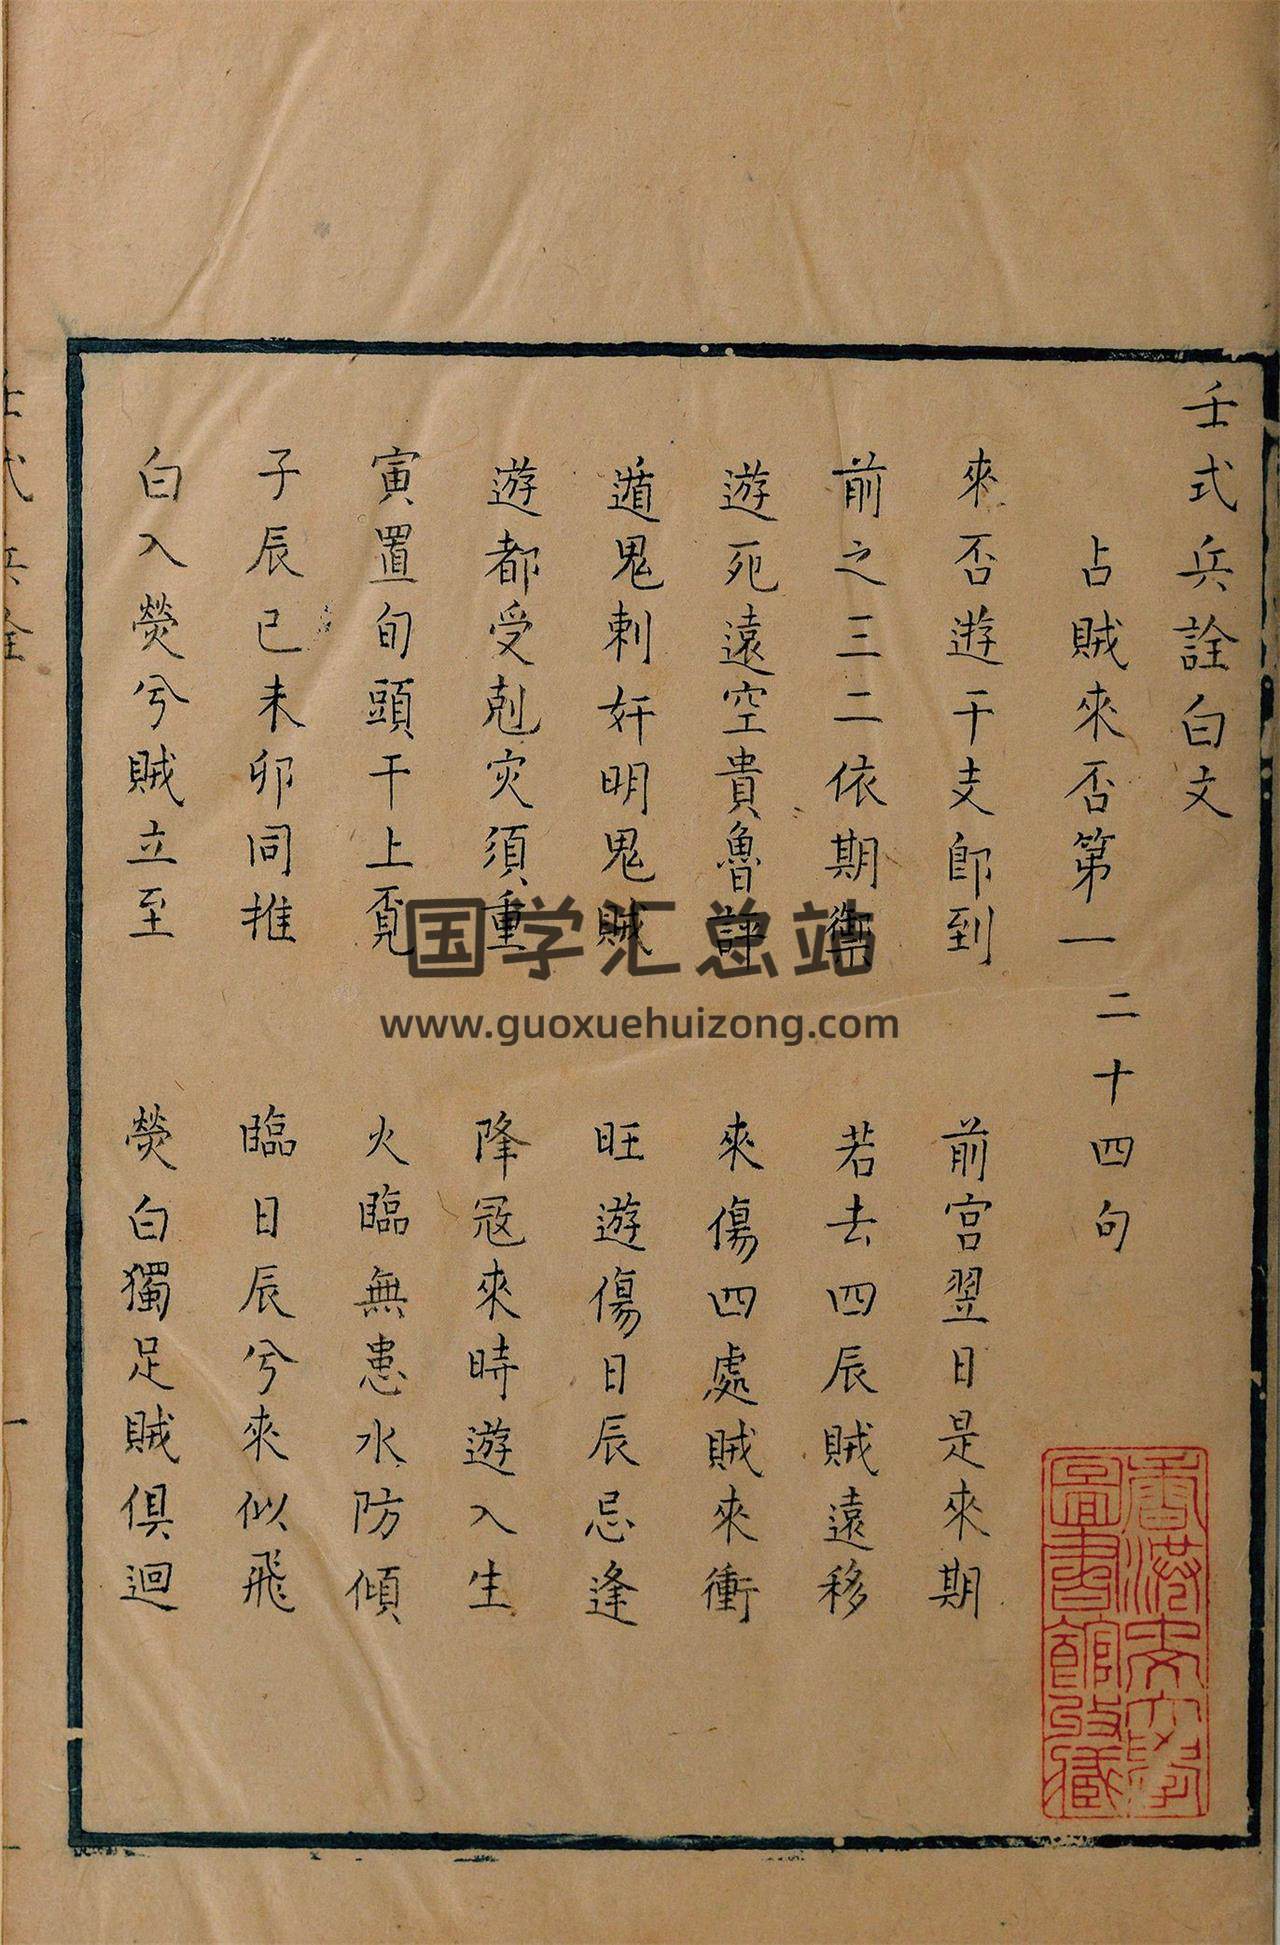 壬式兵詮白文
占賊來否第一 二十四句
來否遊干支即到 前宮翌日是來期
前之三二依期禦 若去四辰賊遠移
遊死遠空貴魯評 來傷四處賊來衝
遁鬼剌奸明鬼賊 旺遊傷日辰忌逢
遊都受剋灾須重 降冦來時遊入生
寅置旬頭干上覔 火臨無患水防傾
子辰巳未卯同推 臨日辰兮來似飛
白入熒兮賊立至 熒白獨足賊俱迴
壬式兵詮
一
香港中文大學
圖書館所藏
国学汇总站
www.guoxuehuizong.com